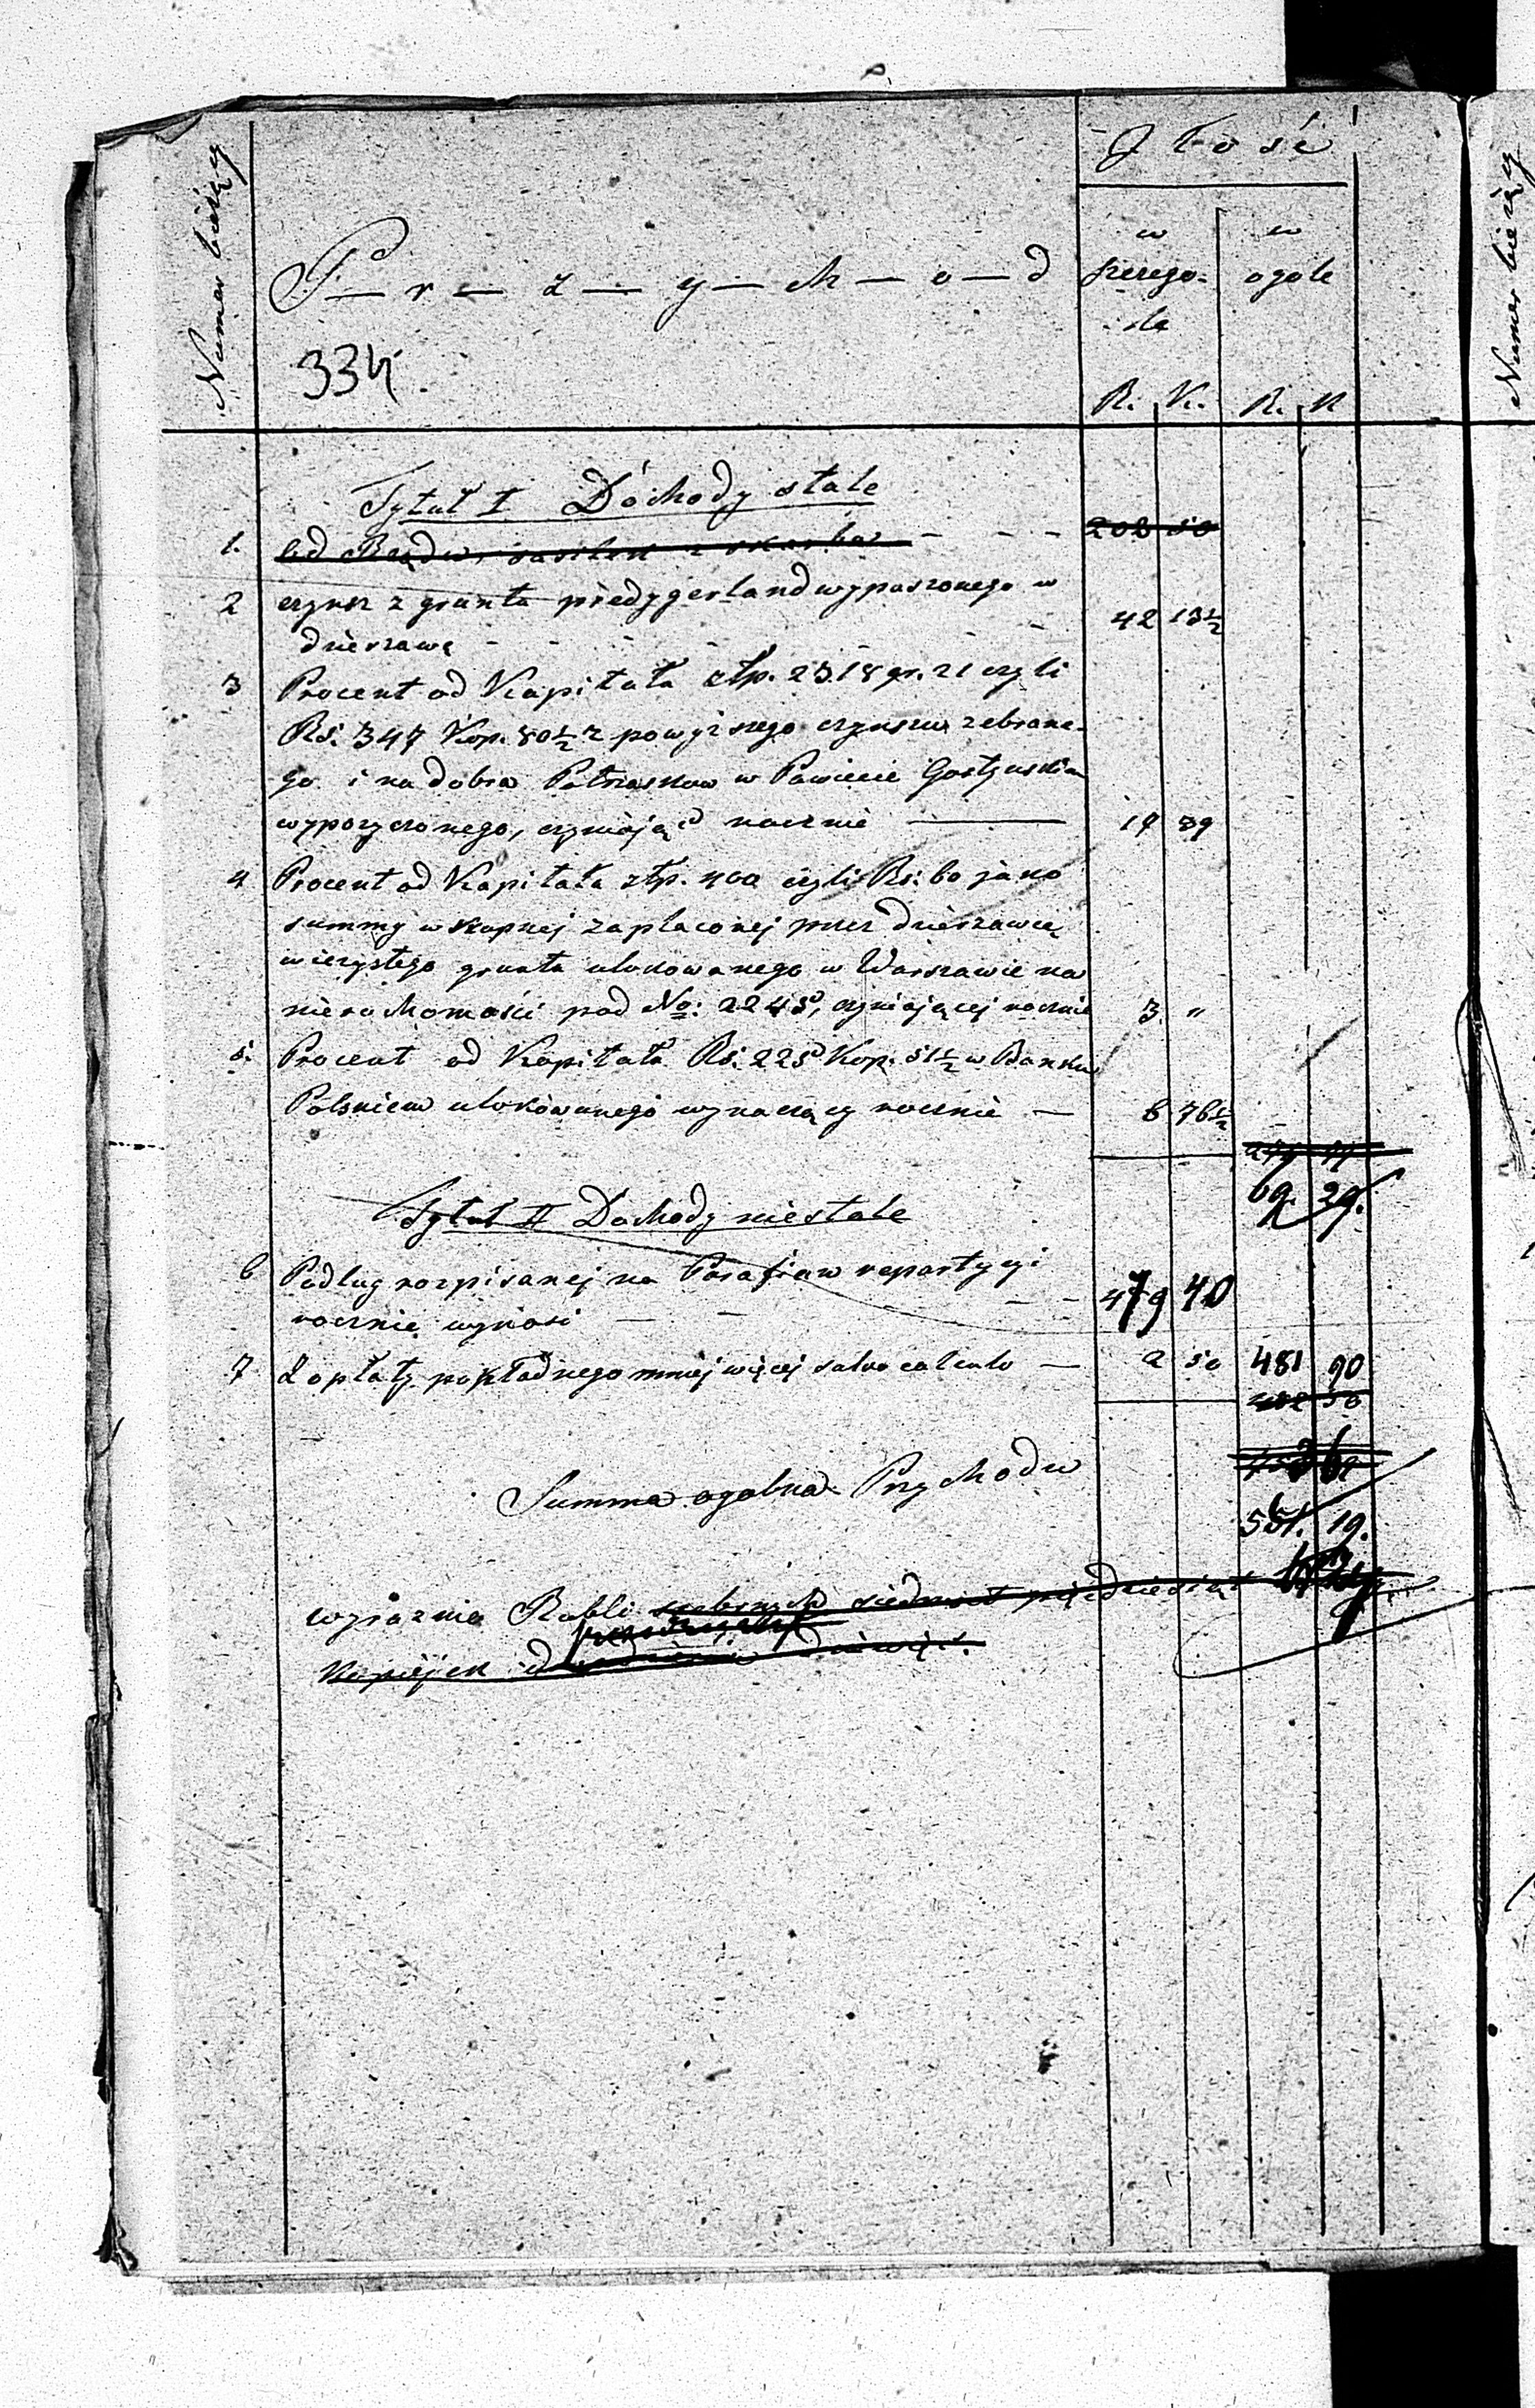 Numer bieżący
P–r–z–y–ch–o–d
Jlość
w szczegole
w ogole
334
R. K. R. K
Tytuł I Dochody stałe
1. od Rządu, zasiłek z skarbu — — — 208 50
2 czynsz z gruntu predygerland wypuszonego w
dzierzawę — — — — — 42 13½
3 Procent od Kapitału złp. 2318 gr. 21 czyli
Rs. 347 Kop. 80½ z powyższego czynszu zebrane-
go i na dobra Patrzaskow w Powiecie Gostyńskim
wypozyczonego, czyniący rocznie — 17 39
4 Procent od Kapitału złp. 400 czyli Rs: 60 jako
summy wkupnej zapłaconej przez dzierzawcę
wieczystego gruntu ulokowanego w Warszawie na
nieruchomości pod No: 2245, czyniącej rocznie 3 "
5. Procent od Kapitału Rs. 225 Kop. 51½ w Banku
Polskiem ulokowanego wynoszący rocznie — 6 76½
69. 29.
Tytuł II Dochody niestałe
6 Podług rozpisanej na Parafian repartycyi
rocznie wynosi — — — — 479 40
7 Z opłaty pokładnego mniej więcej salvo calculo — 2 50 481 90
Summa ogolna Przychodu
551. 19.
wyraznie Rubli srebrnych siedmset piędziesiąt
Kopiejek dziewięć